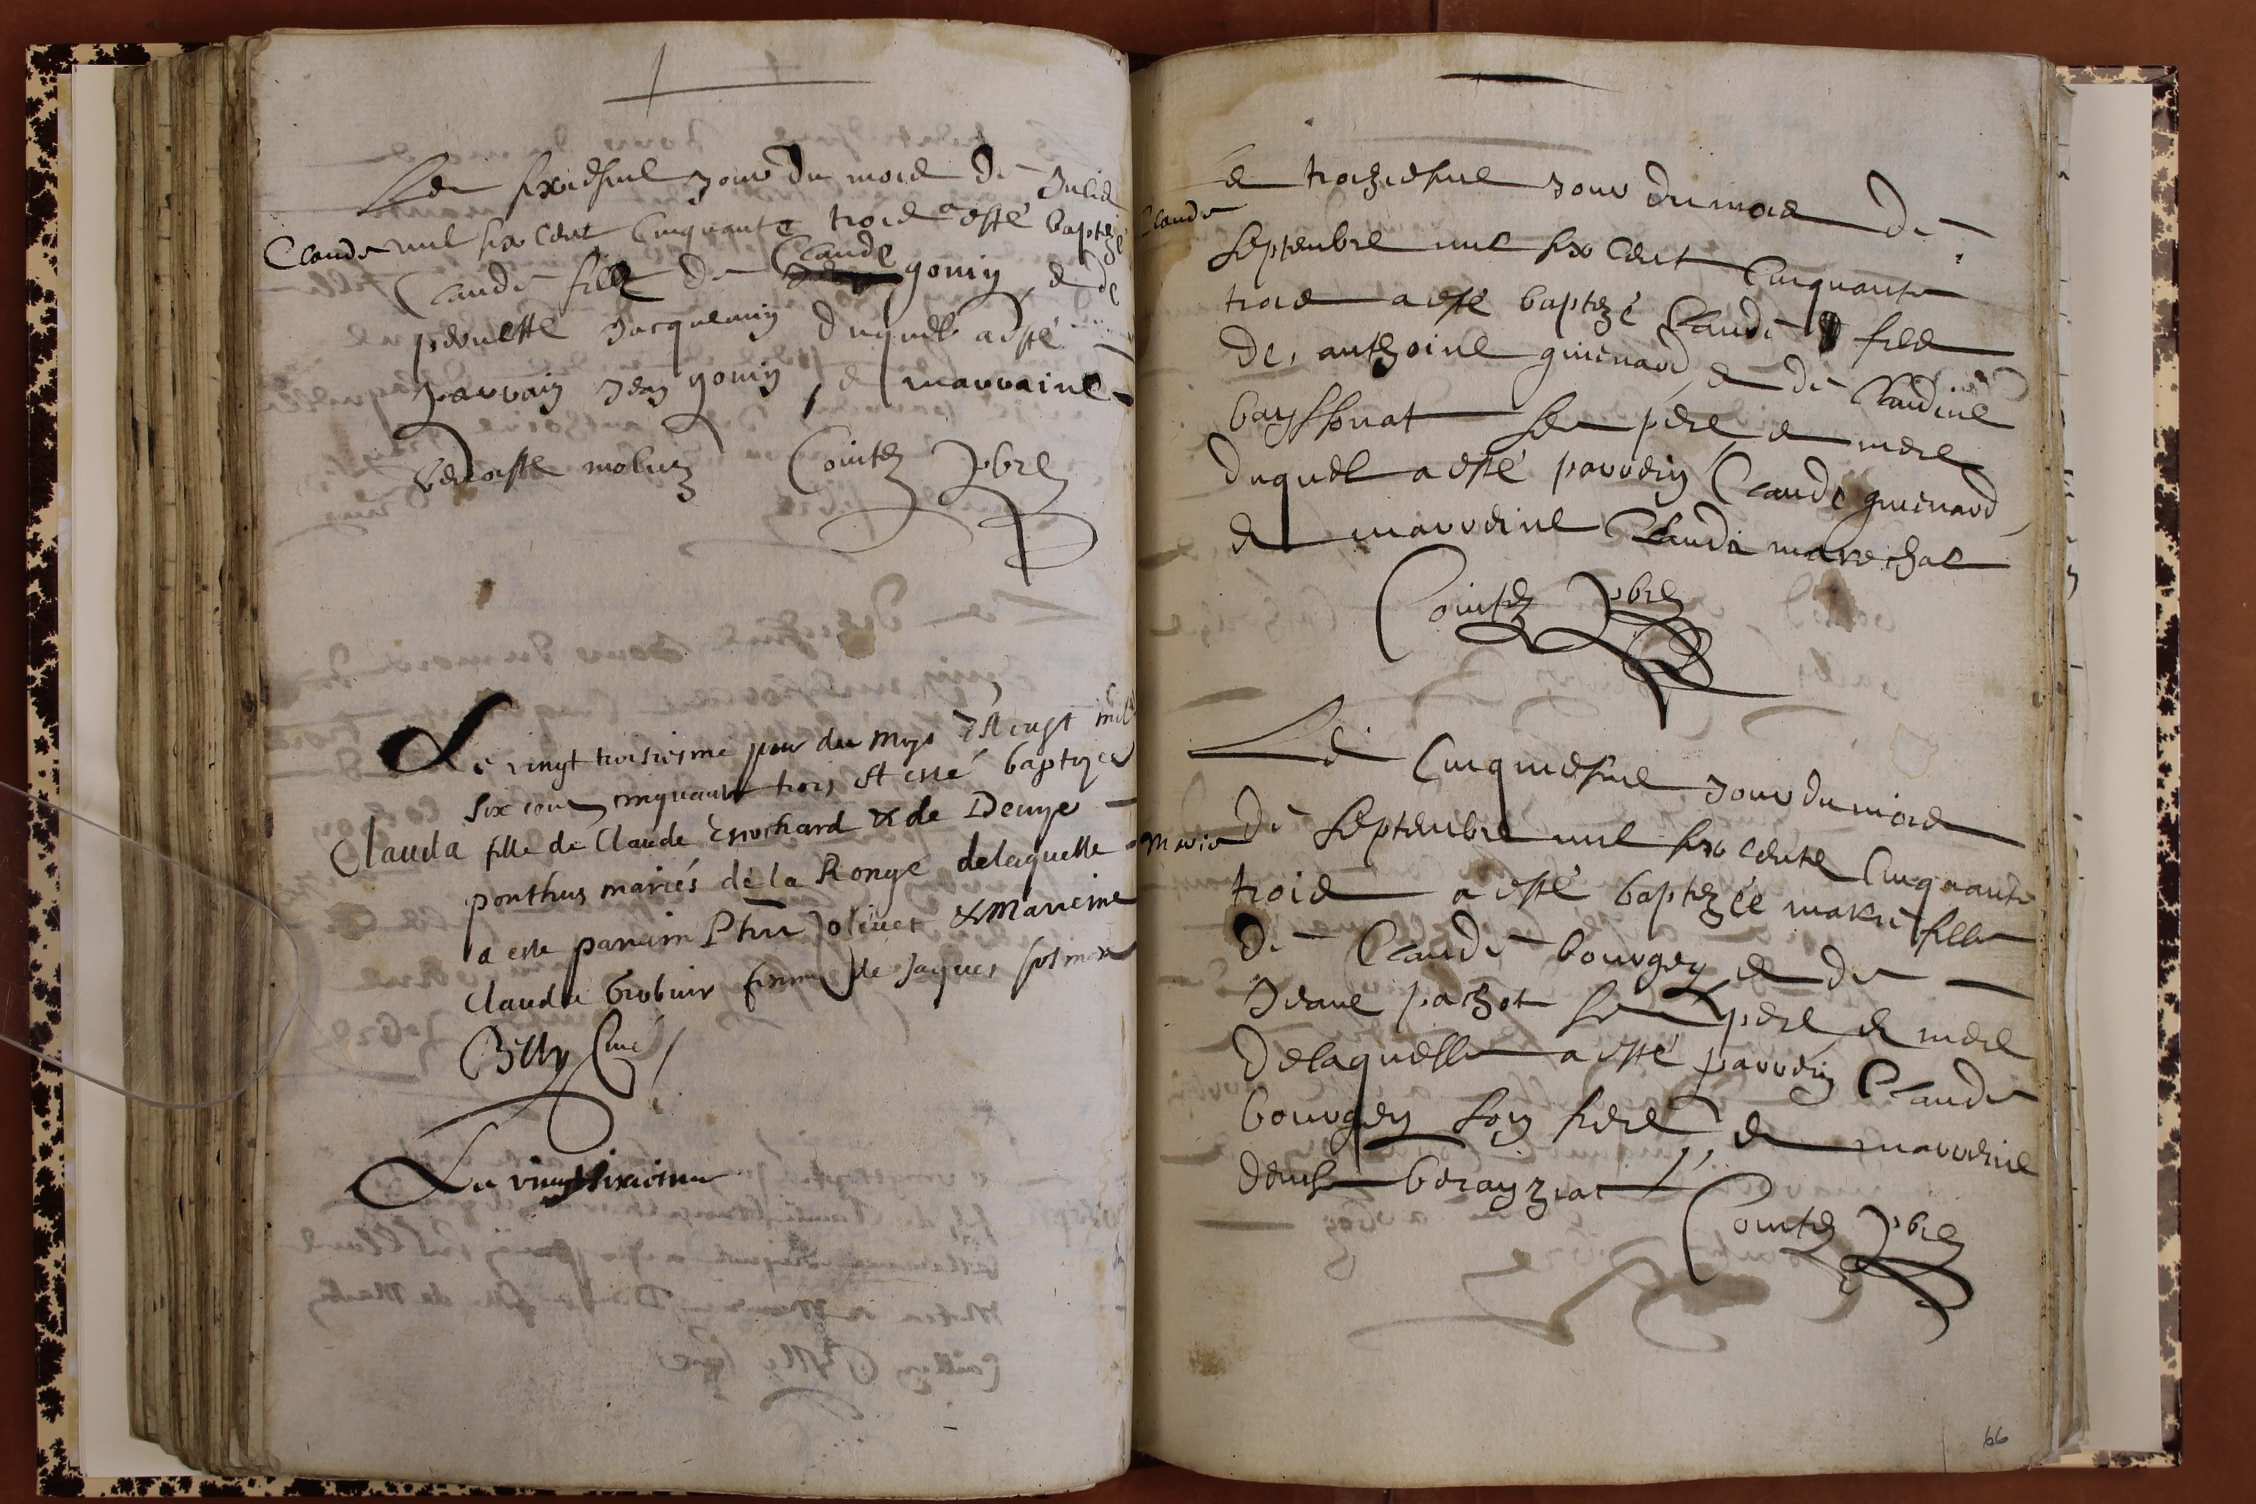 Le sixiesme jour du mois de Julie
Claude mil six cent cinquante trois a esté baptizé
Claude
Claude fille de gonin, e de
pernette Jacquemin duquel a esté
parrain Jean gonin, e marraine
Comte pbre
Le vingt troisiesme jour du moys d'Aoust mil
six cent cinquante trois at esté baptizee
Clauda fille de Claude Enochard & de Denyse
ponthus mariés de la Ronge delaquelle
a este parrain Jolivet & Marreine
Claudae femme de Jaques
Billy Curé
Le vingt sixiesme
Le troiziesme jour du mois de
Claude
septembre mil six cent cinquante
trois a esté baptizé Claude filz
de, anthoine guienard e de Claudine
bayssonat se pere e mere
duquel a esté parrein Claude guienard
e marreine Clauda mareschal
Comte pbre
Le cinquiesme jour du mois
Marie de septembre mil six cente cinquante
trois a esté baptizée marie fille
de Claude bourgey e de
Jeane pachot se pere e mere
delaquelle a esté parrein Claude
bourgey son frere, e marreine
denise berayziat
Comte pbre
66